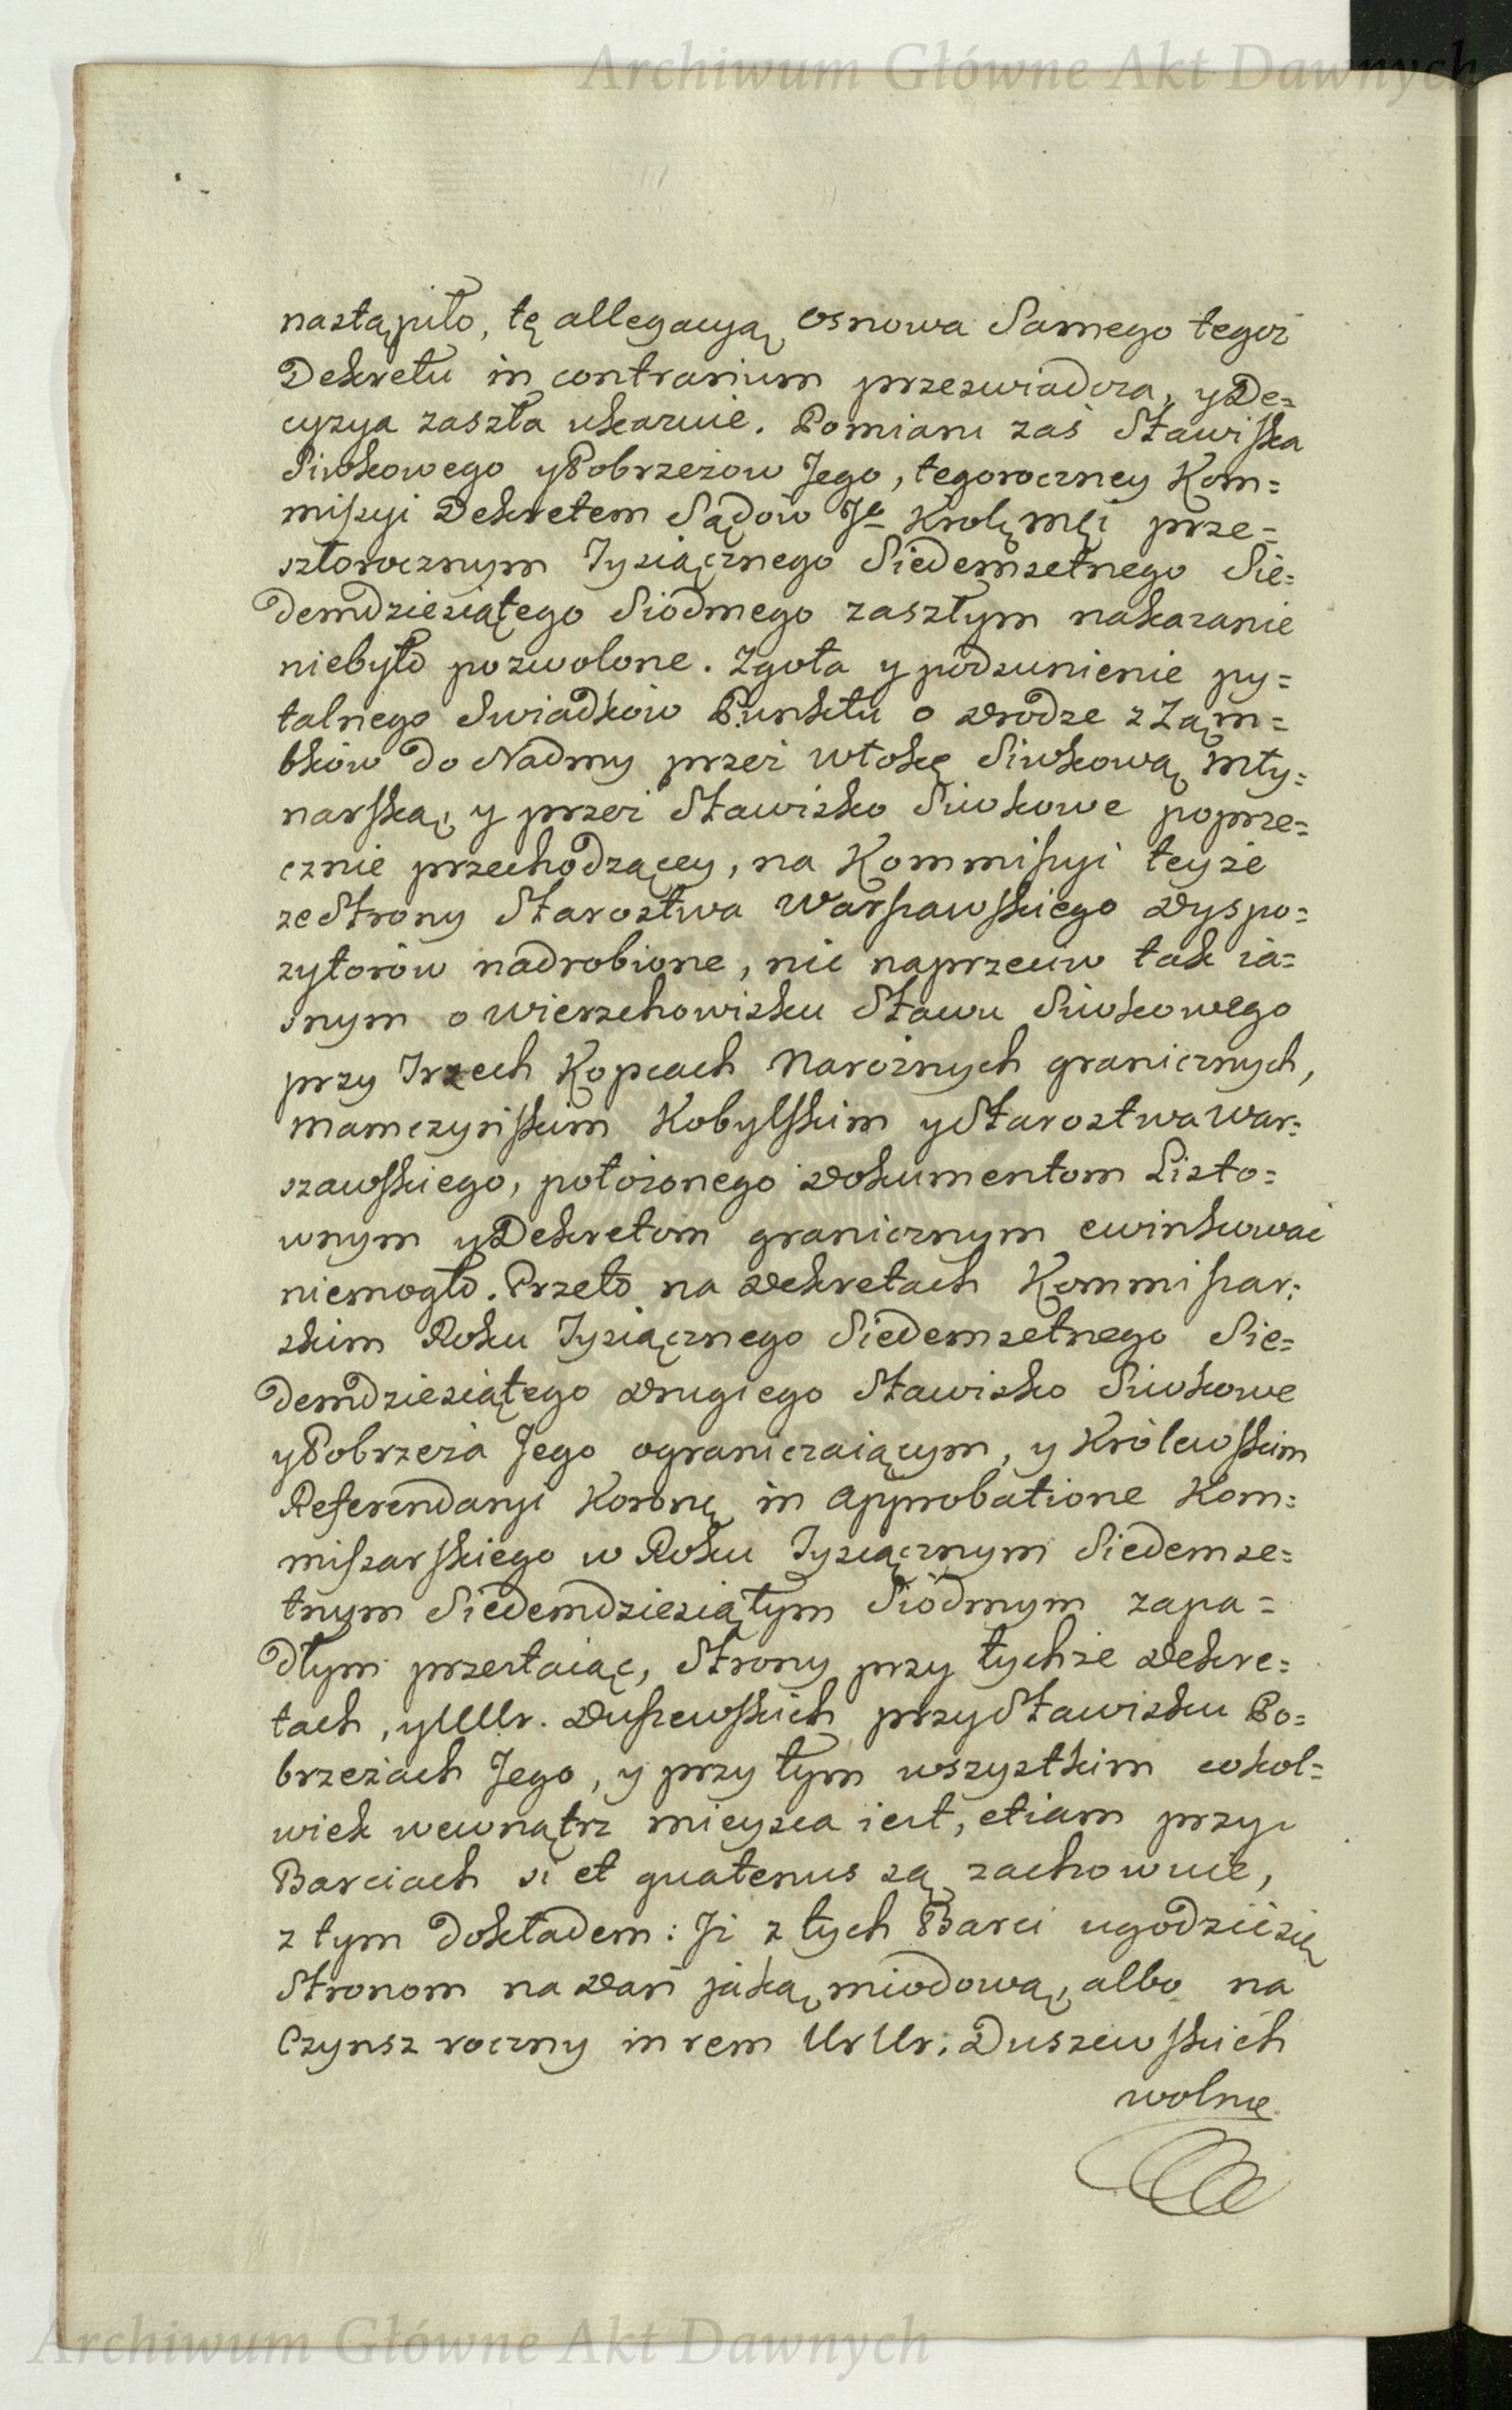 Archiwum Główne Akt Dawnych
nastąpiło, tę allegacyą osnowa Samego tegoż
Dekretu in contrarium przeświadcza, y De=
cyzya zaszła ukazuie. Pomiaru zaś Stawiska
Siwkowego y Pobrzeżow Jego, tegoroczney Kom=
missyi Dekretem Sądow Jº Krolę Mći prze=
szłorocznym Tysiącznego Siedemsetnego Sie=
demdziesiątego Siodmego zaszłym nakazanie
niebyło pozwolone. Zgoła y podsunienie py=
talnego Swiadkow Punktu o drodze z Ząm=
bkow do Nadmy przez włokę Siwkową Mły=
narską, y przez Stawisko Siwkowe poprze=
cznie przechodzącey, na Kommissyi teyże
ze Strony Starostwa Warszawskiego dyspo=
zytorów nadrobione, nic naprzeciw tak ia=
snym o wierzchowisku Stawu Siwkowego
przy Trzech Kopcach Narożnych granicznych,
Mamczyńskim Kobylskim y Starostwa War=
szawskiego, położonego dokumentom Listo=
wnym y Dekretom granicznym ewinkować
niemogło. Przeto na dekretach Kommissar=
skim Roku Tysiącznego Siedemsetnego Sie=
demdziesiątego drugiego Stawisko Siwkowe
y Pobrzeża Jego ograniczaiącym, y Królewskim
Referendaryi Koronę in approbatione Kom=
missarskiego w Roku Tysiącznym Siedemse=
tnym Siedemdziesiątym Siódmym zapa=
dłym przestaiąc, Strony przy tychże dekre=
tach, y UUr. Duszewskich przy Stawisku Po=
brzeżach Jego, y przy tym wszystkim cokol=
wiek wewnątrz mieysca iest, etiam przy
Barciach si et quatenus są zachowuie,
z tym dokładem: Iż z tych Barci ugodzić się
Stronom na dań jaką miodową, albo na
Czynsz roczny in rem Ur Ur. Duszewskich
wolne
Archiwum Główne Akt Dawnych